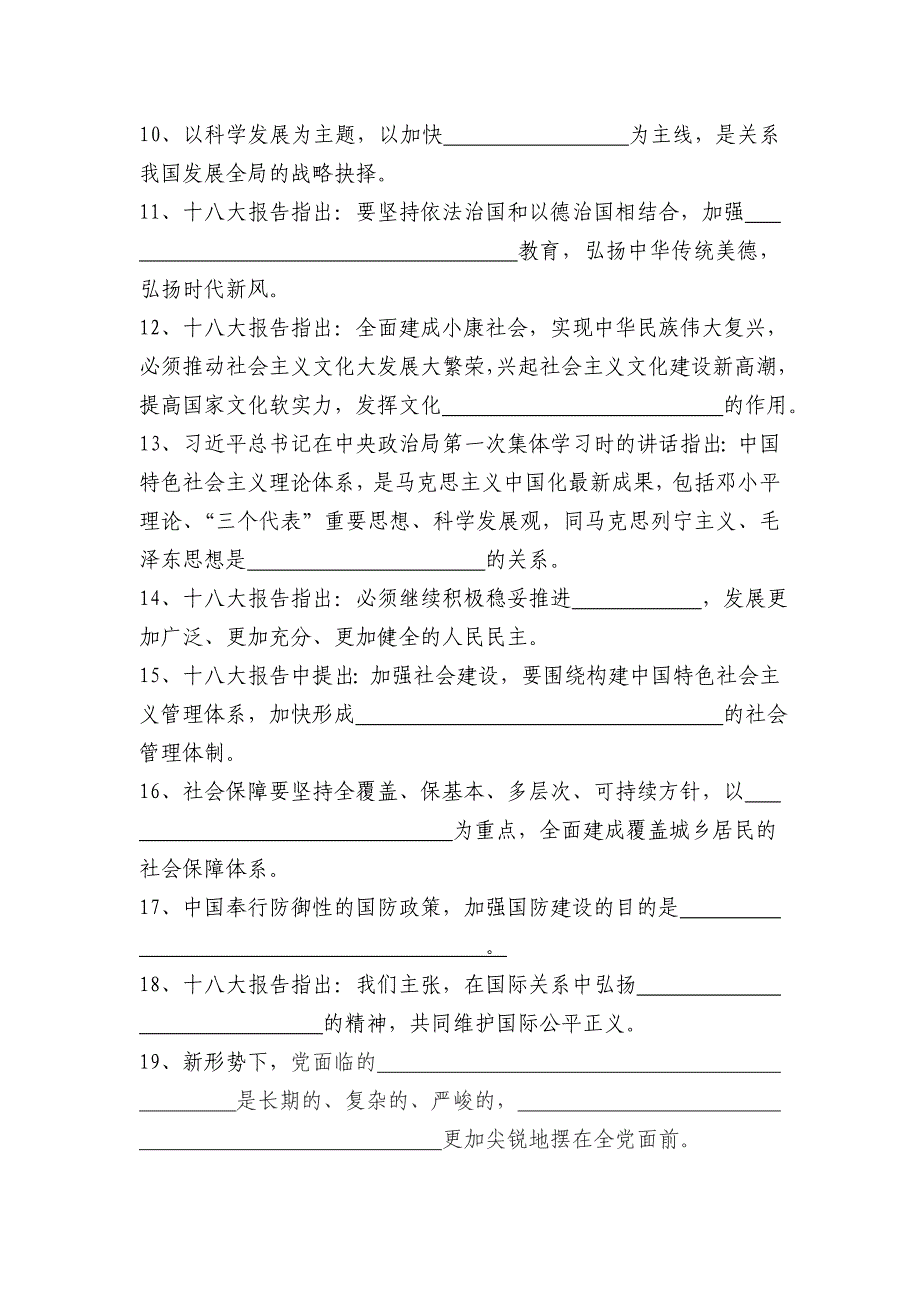 10、以科学发展为主题，以加快________________为主线，是关系
我国发展全局的战略抉择。
11、十八大报告指出：要坚持依法治国和以德治国相结合，加强___
________________________________教育，弘扬中华传统美德，
弘扬时代新风。
12、十八大报告指出：全面建成小康社会，实现中华民族伟大复兴，
必须推动社会主义文化大发展大繁荣，兴起社会主义文化建设新高潮，
提高国家文化软实力，发挥文化________________________的作用。
13、习近平总书记在中央政治局第一次集体学习时的讲话指出：中国
特色社会主义理论体系，是马克思主义中国化最新成果，包括邓小平
理论、“三个代表”重要思想、科学发展观，同马克思列宁主义、毛
泽东思想是____________________的关系。
14、十八大报告指出：必须继续积极稳妥推进___________，发展更
加广泛、更加充分、更加健全的人民民主。
15、十八大报告中提出：加强社会建设，要围绕构建中国特色社会主
义管理体系，加快形成________________________________的社会
管理体制。
16、社会保障要坚持全覆盖、保基本、多层次、可持续方针，以___
___________________________为重点，全面建成覆盖城乡居民的
社会保障体系。
17、中国奉行防御性的国防政策，加强国防建设的目的是_________
______________________________。
18、十八大报告指出：我们主张，在国际关系中弘扬____________
________________的精神，共同维护国际公平正义。
19、新形势下，党面临的___________________________________
________是长期的、复杂的、严峻的，_______________________
__________________________更加尖锐地摆在全党面前。